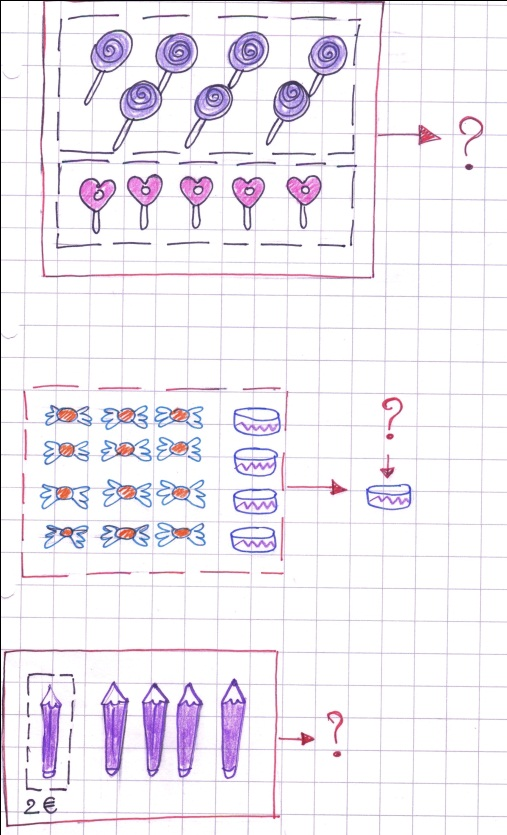 ?
?
?
2€